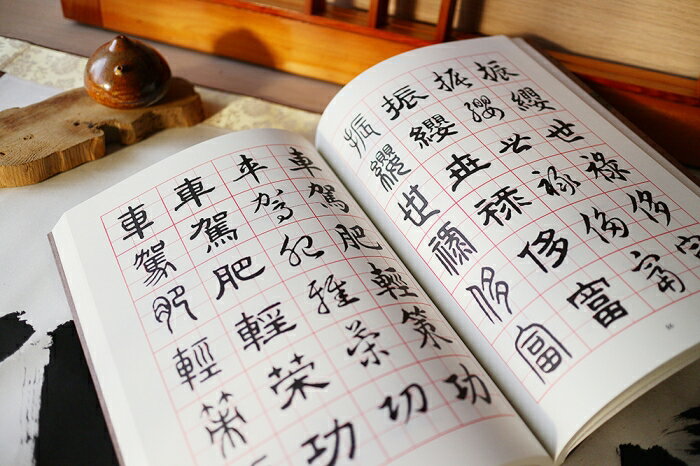 車 車 車 車
駕 駕 駕 駕
肥 肥 肥 肥
輕 輕 輕 輕
策 策 策 策
功 功 功
振 振 振 振
纓 纓 纓 纓
世 世 世 世
祿 祿 祿 祿
侈 侈 侈 侈
富 富 富 富